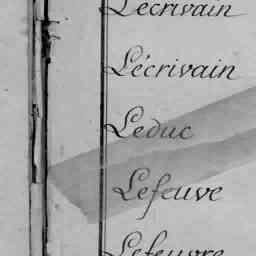 Lécrivain
Lécrivain
Leduc
Lefeuve
Lefeuvre